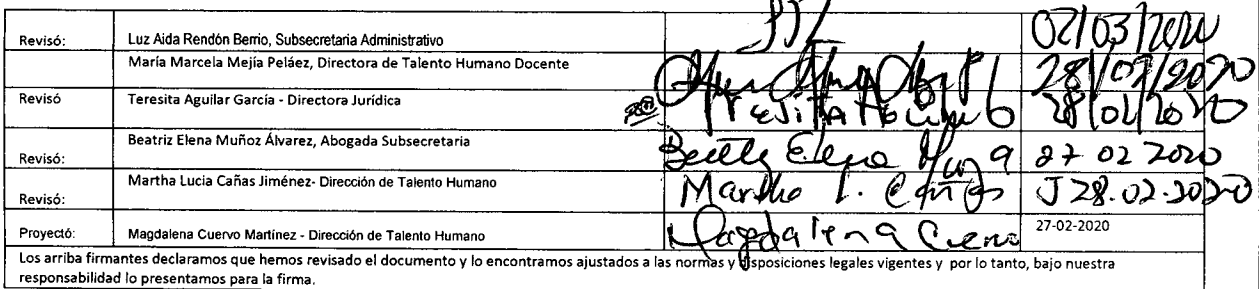 Revisó: Luz Aida Rendón Berrio, Subsecretaria Administrativo 02/03/2020
María Marcela Mejía Peláez, Directora de Talento Humano Docente 28/02/2020
Revisó Teresita Aguilar García - Directora Jurídica Teresita Aguilar G 28/02/2020
Revisó: Beatriz Elena Muñoz Álvarez, Abogada Subsecretaria Beatriz Elena Muñoz A 27 02 2020
Revisó: Martha Lucia Cañas Jiménez- Dirección de Talento Humano Martha L. Cañas J 28.02.2020
Proyectó: Magdalena Cuervo Martínez - Dirección de Talento Humano Magdalena Cuervo 27-02-2020
Los arriba firmantes declaramos que hemos revisado el documento y lo encontramos ajustados a las normas y disposiciones legales vigentes y por lo tanto, bajo nuestra
responsabilidad lo presentamos para la firma.